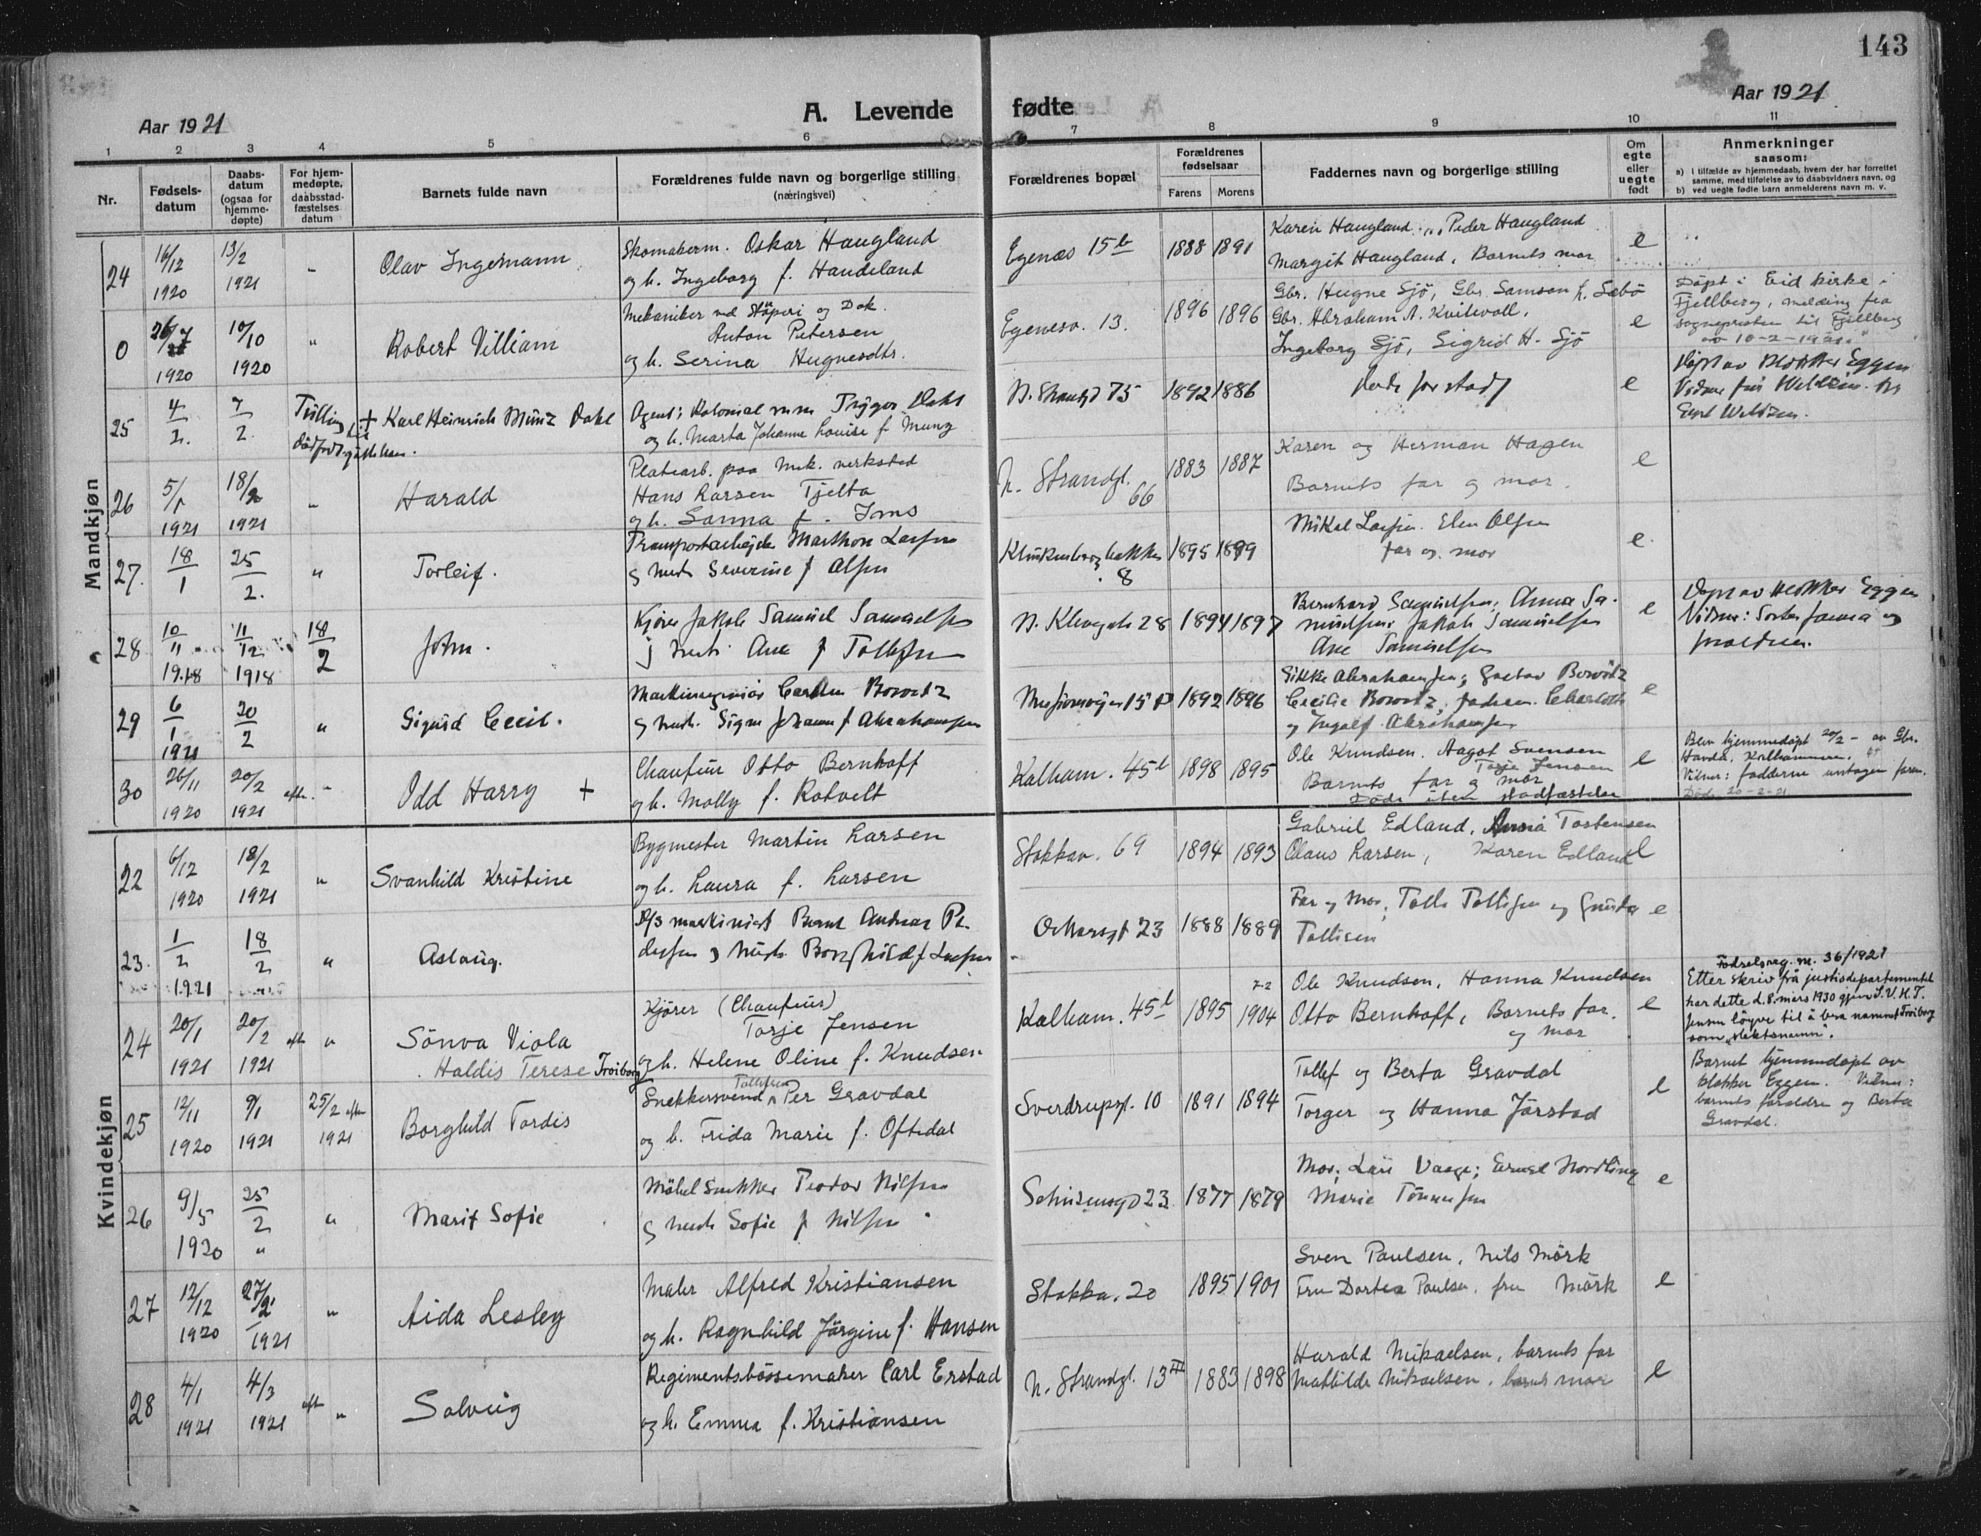 143
Aar 1921
A. Levende fødte
Aar 1921
1 2 3 4 5 6 7 8 9 10 11
Nr.
Fødsels-
datum
Daabs-
datum
(ogsaa for
hjemme-
døpte)
For hjem-
medøpte,
daabsstad-
fæstelses
datum
Barnets fulde navn
Forældrenes fulde navn og borgerlige stilling
(næringsvei)
Forældrenes bopæl
Forældrenes
fødselsaar
Farens Morens
Faddernes navn og borgerlige stilling
Om
egte
eller
uegte
født
Anmerkninger
saasom:
a) i tilfælde av hjemmedaab, hvem der har forrettet
samme, med tilføielse av to daabsvidners navn, og
b) ved uegte fødte barn anmelderens navn m. v.
Mandkjøn
24 16/12 1920 13/2 1921 " Olav Ingemann
Skomakerm. Oskar Haugland
og h. Ingeborg f. Handeland
Egenæs 15b 1888 1891
Karen Haugland, Peder Haugland
Margit Haugland, Barnets mor
e
0 26/7 1920 10/10 1920 " Robert Villiam
Mekaniker ved Støperi og Dok
Anton Petersen
og h. Serina Hugnesdtr.
Egenesv. 13. 1896 1896
Gbr. Hugne Sjö, Gbr. Samson h. Sæbö
Gbr. Abraham A. Kvitevoll,
Ingeborg Sjö, Sigrid H. Sjö
e
Döpt i Eid kirke i
Fjellberg, melding fra
sognepresten til Fjellberg
av 10-2-1921
25 4/2 7/2 + Karl Heinrich Münz Dahl
Agent i Kolonial Trygve Dahl
og h. Marta Johanne Louise f. Munz
N. Strandgt 75 1892 1886
e
Døpt av klokker Eggen
26 5/1 1921 18/2 1921 " Harald
Platearb. paa mek. verksted
Hans Larsen Tjelta
og h. Sanna f. Ims
N. Strandgt. 66 1883 1887
Karen og Herman Hagen
Barnets far og mor.
e
27. 18/1 25/2. " Torleif.
Transportarbeider Marthon Larsen
og hust. Severine f Olsen
Klinkenbergbakken 8 1895 1899
Mikal Larsen. Elen Olsen
far og mor
e
28 10/11 1918 11/12 1918 18/2 John.
Kjører Jakob Samuel Samuelsen
og hust. Ane f Tollefsen
N. Klevegate 28 1894 1897
Bernhard Samuelsen; Anna Sa-
muelsen; Jakob Samuelsen
Ane Samuelsen
e
Døpt av klokker Eggen
29 6/1 1921 20/2 " Sigurd Cecil.
og hust. Signe Johanne f Abrahamsen
Misjonsveien 15 1892 1896
og Ingolf Abrahamsen
e
30 26/11 1920 20/2 1921 eft. " Odd Harry +
Chauför Otto Bernhoff
og h. Molly f. Rotvelt
Kalham. 45b 1898 1895
Ole Knudsen. Aagot Svensen
Torje Jensen
Barnets far og mor
Döde uten stadfæstelse
e
Blev hjemmedöpt 20/2 - av Gbr.
Kalhammern.
Vidner: fadderne untagen faren.
Döde 20-2-21
Kvindekjøn
22 6/12 1920 18/2 1921 " Svanhild Kristine
Bygmester Martin Larsen
og h. Laura f. Larsen
Stokkav. 69 1894 1893
Gabriel Edland, Anna Tostensen
Olaus Larsen, Karen Edland
e
23. 1/2 1921 18/2 " Aslaug.
D/S maskinist Bernt Andreas Pe-
dersen og hust. Borghild f Larsen
Oskarsgt 23 1888 1889
Far og Mor; Tolle Tollisen og Gurida
Tollisen
e
24 20/1 1921 20/2 1921 eft " Sönva Viola
Haldis Terese Troiborg
Kjörer (Chauför)
Torje Jensen
og h. Helene Oline f. Knudsen
Kalham. 45b 1895 1904
Ole Knudsen, Hanna Knudsen
Otto Bernhoff, Barnets far.
og mor
e
Fødselsreg. nr. 36/1921
Etter skriv frå justisdepartementet
har dette d. 8. mars 1930 gjeve S.V.H.T.
Jensen løyve til å bera namnet Troiborg
som "slektsnamn".
25 12/11 1920 9/1 1921 25/2 eft 1921 Borghild Tordis
Snekkersvend Tollefsen Per Gravdal
og h. Frida Marie f. Oftedal
Sverdrupsgt. 10 1891 1894
Tollef og Berta Gravdal
Torger og Hanna Jörstad
e
Barnet hjemmedöpt av
klokker Eggen. Vidner:
barnets forældre og Berta
Gravdal.
26 9/5 1920 25/2 " " Marit Sofie
Möbelsnekker Teodor Nilsen
og hust. Sofie f Nilsen
23 1877 1879
Mor; Vaage; Ernst Nordling
Marie Tönnesen
e
27 12/12 1920 27/2 1921 " Aida Lesley
Maler Alfred Kristiansen
og h. Ragnhild Jörgine f. Hansen
Stokka. 20 1895 1901
Sven Paulsen, Nils Mörk
Fru Dortea Paulsen, fru Mörk
e
28 4/1 1921 4/3 1921 eft " Solveig
Regimentsbössemaker Carl Erstad
og h. Emma f. Kristiansen
N. Strandgt. 13III 1883 1898
Harald Mikaelsen, barnets far
Mathilde Mikaelsen, barnets mor
e